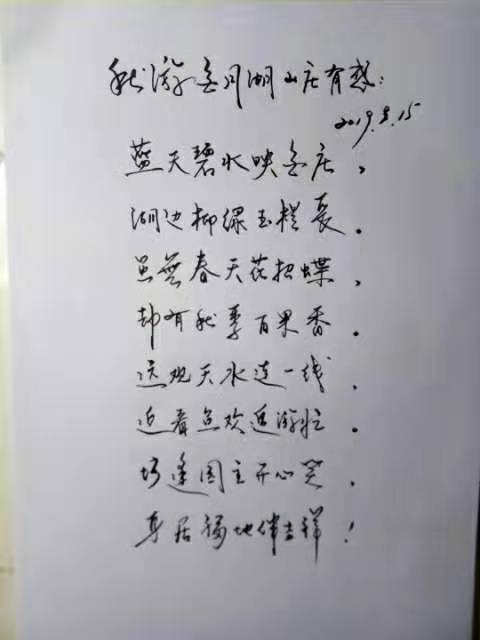 秋游金月湖山庄有感:
2019.8.15
蓝天碧水映金庄,
湖边柳绿玉栏长。
虽无春天花招蝶,
却有秋季百果香。
远观天水连一线,
近看鱼欢逐游忙。
巧逢园主开心笑,
身居福地伴吉祥!